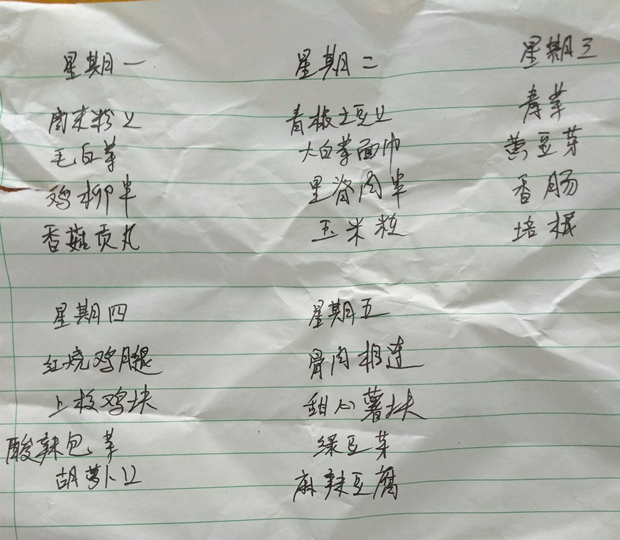 星期一
肉末粉丝
毛白菜
鸡柳半
香菇贡丸
星期二
青椒土豆丝
大白菜面巾
里脊肉半
玉米粒
星期三
青菜
黄豆芽
香肠
培根
星期四
红烧鸡腿
上校鸡块
酸辣包菜
胡萝卜丝
星期五
骨肉相连
甜心薯块
绿豆芽
麻辣豆腐